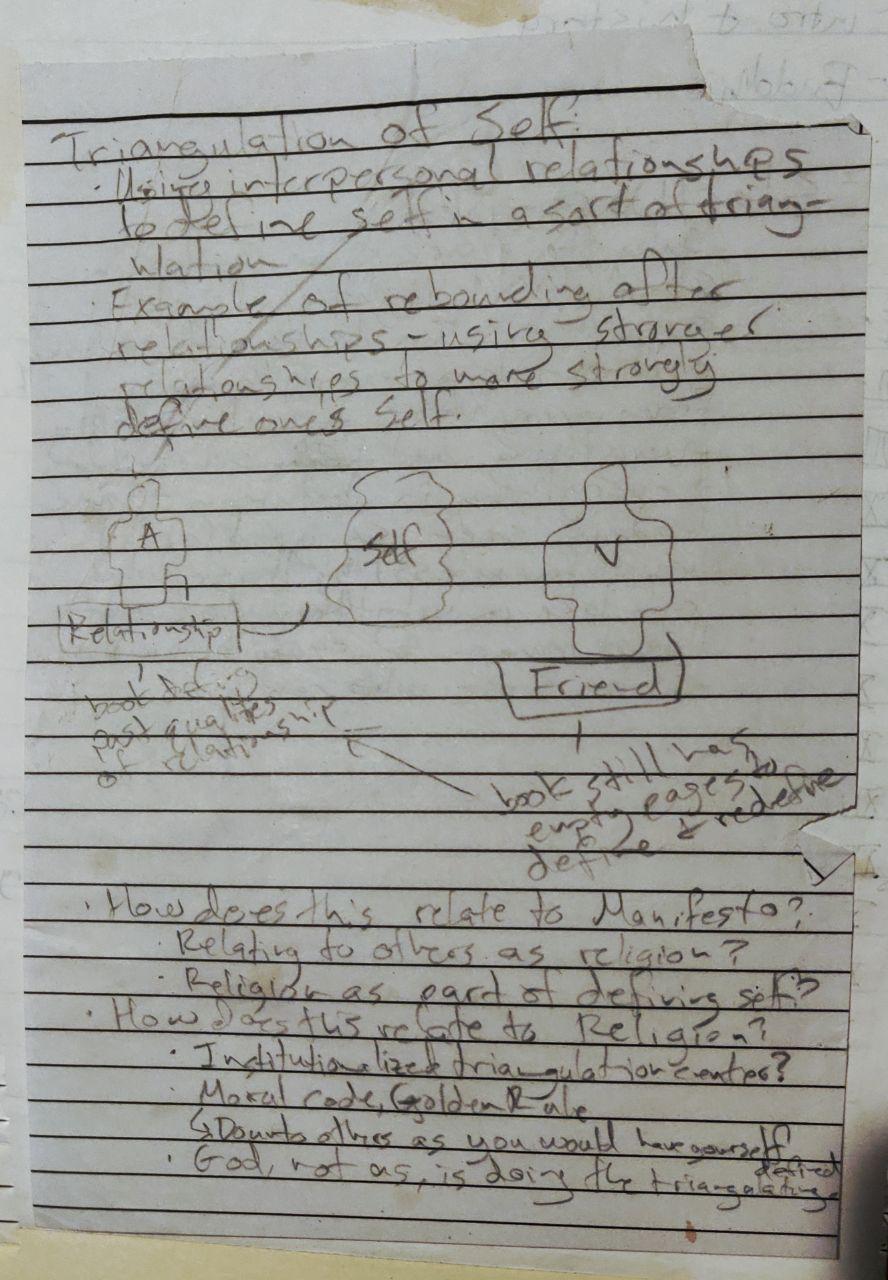 Triangulation of Self:
· Using interpersonal relationships
to define self in a sort of trian-
ulation
· Example of rebounding after
relationships - using stronger
relationships to more strongly
define one's Self.
A
Self
V
Relationship
Friend
book
past qualities
of relationship
book still has
empty pages to
define & redefine
· How does this relate to Manifesto?
· Relating to others as religion?
· Religion as part of defining self?
· How does this relate to Religion?
· Institutionalized triangulation center?
· Moral code, Golden Rule
↳ Do unto others as you would have yourself
defined
· God, not as, is doing the triangulating